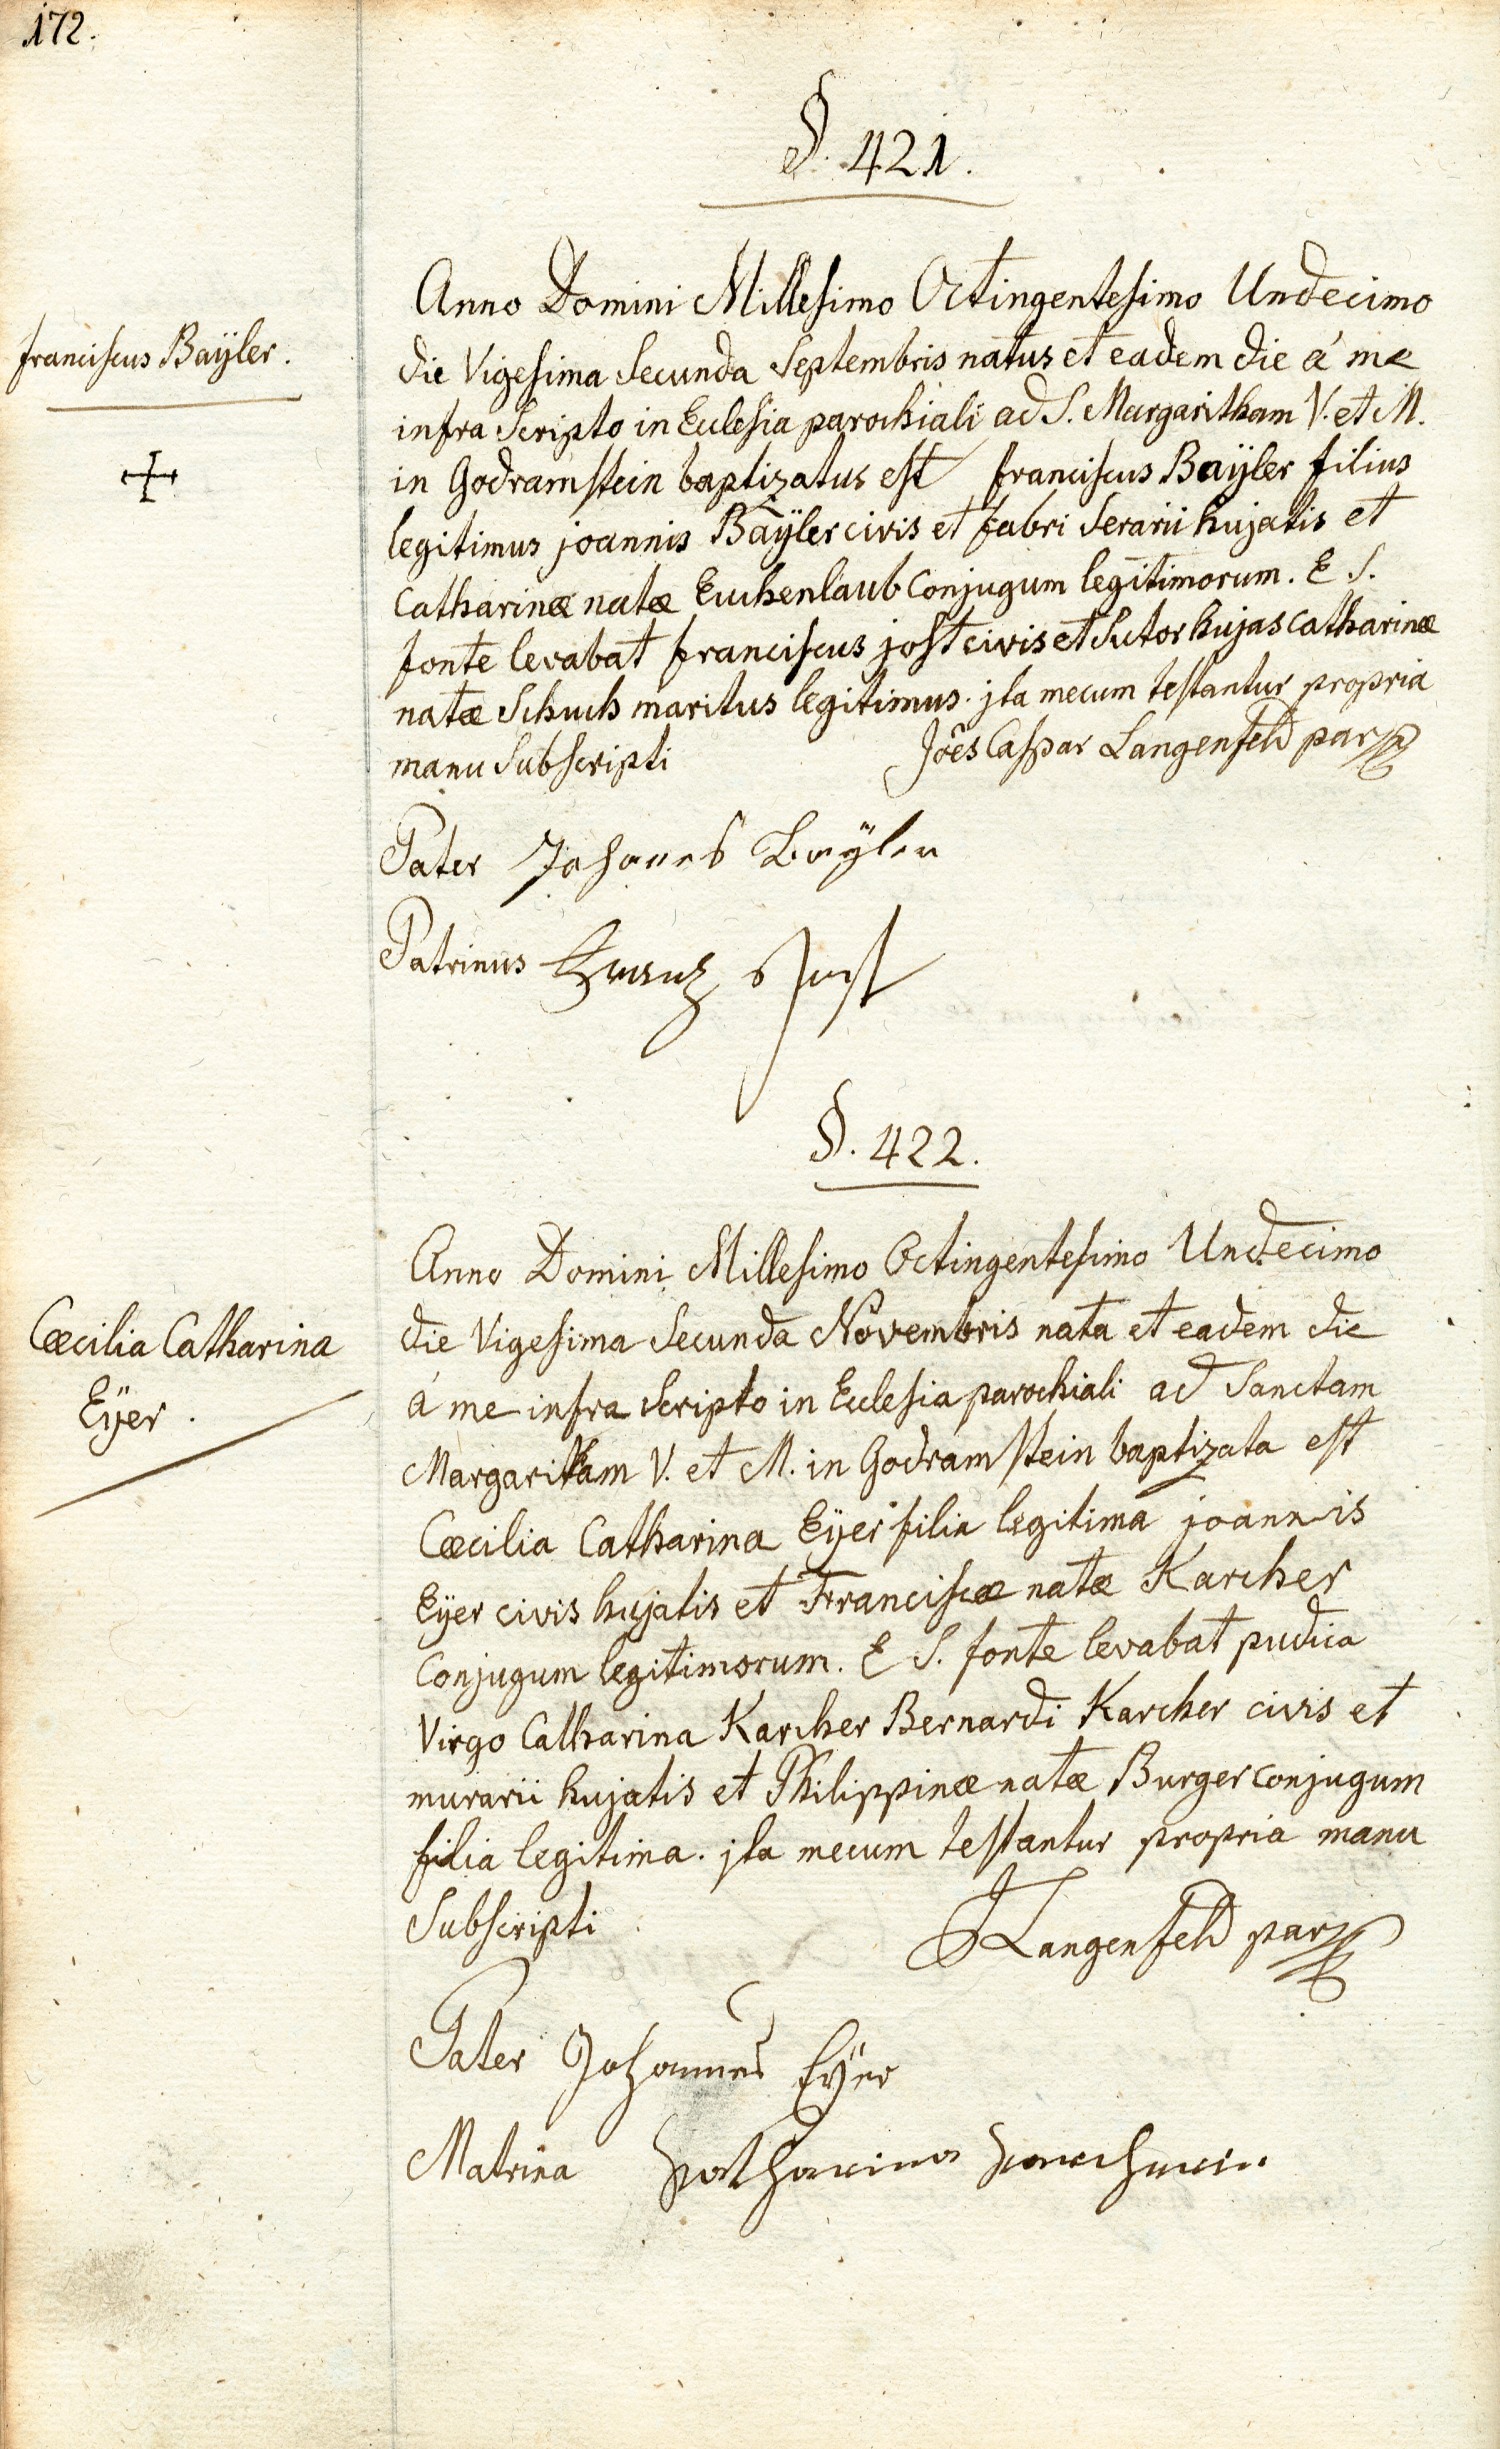 172.
§. 421.
Anno Domini Millesimo Octingentesimo Undecimo
franciscus Baÿler.
die Vigesima Secunda Septembris natus et eadem die á me
infra Scripto in Ecclesia parochiali ad S. Margaritham V. et M.
in Godramstein baptizatus est franciscus Baÿler filius
legitimus joannis Baÿler civis et fabri Serarii hujatis et
Catharinæ natæ Euchenlaub Conjugum legitimorum. E S.
fonte levabat franciscus jost civis et Sutor hujas Catharinæ
natæ Schuch maritus legitimus. jta mecum testantur propria
manu Subscripti
Jôes Caspar Langenfeld par
Pater Johanes Baÿler
Patrinus Franz Jost
§. 422.
Anno Domini Millesimo Octingentesimo Undecimo
Cæcilia Catharina
Eÿer.
die Vigesima Secunda Novembris nata et eadem die
á me infra Scripto in Ecclesia parochiali ad Sanctam
Margaritham V. et M. in Godramstein baptizata est
Cæcilia Catharina Eÿer filia legitima joannis
Eÿer civis hujatis et Franciscæ natæ Karcher
Conjugum legitimorum. E S. fonte levabat pudica
Virgo Catharina Karcher Bernardi Karcher civis et
murarii hujatis et Philippinæ natæ Burger conjugum
filia legitima. jta mecum testantur propria manu
Subscripti
Langenfeld par
Pater Johannes Eÿer
Matrina Katharina Karcherin